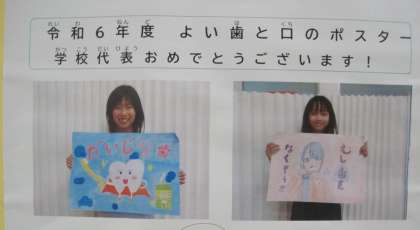 令和6年度 よい歯と口のポスター
学校代表おめでとうございます!
むし歯を
なくそう!!